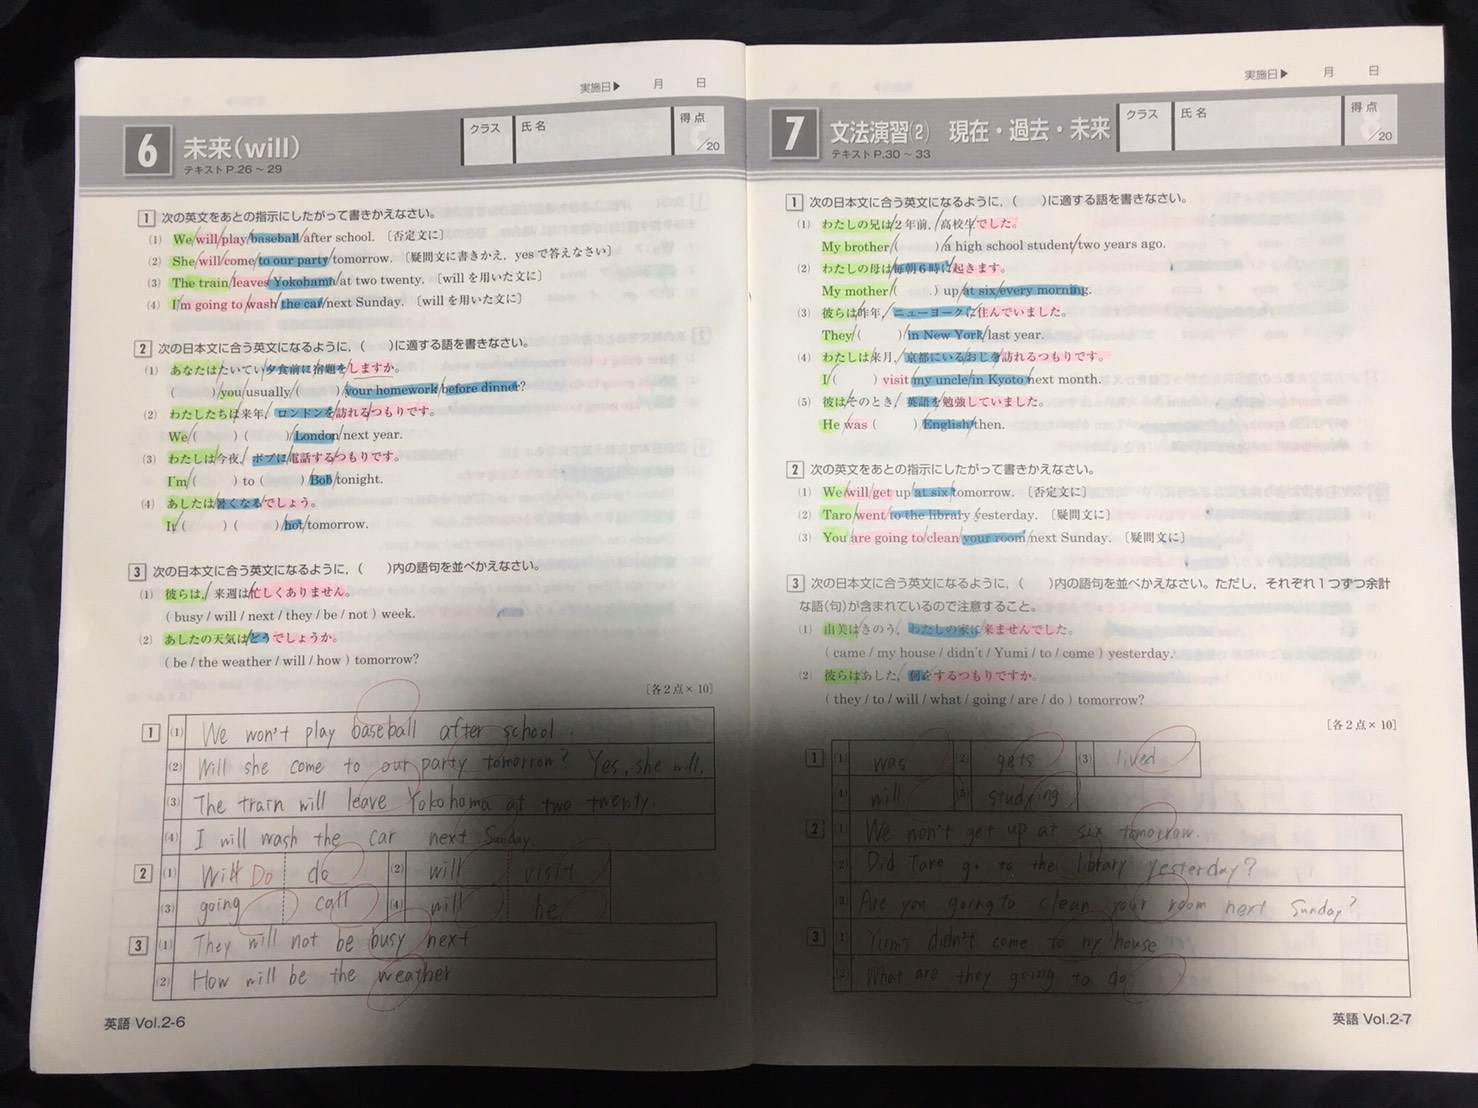 実施日▶ 月 日
6 未来(will)
テキストP.26～29
クラス 氏名 得点 /20
1 次の英文をあとの指示にしたがって書きかえなさい。
(1) We will play baseball after school. 〔否定文に〕
(2) She will come to our party tomorrow. 〔疑問文に書きかえ，yesで答えなさい〕
(3) The train leaves Yokohama at two twenty. 〔willを用いた文に〕
(4) I'm going to wash the car next Sunday. 〔willを用いた文に〕
2 次の日本文に合う英文になるように，( )に適する語を書きなさい。
(1) あなたはたいてい夕食前に宿題をしますか。
( ) you usually ( ) your homework before dinner?
(2) わたしたちは来年，ロンドンを訪れるつもりです。
We ( ) ( ) London next year.
(3) わたしは今夜，ボブに電話するつもりです。
I'm ( ) to ( ) Bob tonight.
(4) あしたは暑くなるでしょう。
It ( ) ( ) hot tomorrow.
3 次の日本文に合う英文になるように，( )内の語句を並べかえなさい。
(1) 彼らは，来週は忙しくありません。
( busy / will / next / they / be / not ) week.
(2) あしたの天気はどうでしょうか。
( be / the weather / will / how ) tomorrow?
［各2点×10］
1 (1) We won't play baseball after school.
(2) Will she come to our party tomorrow? Yes, she will.
(3) The train will leave Yokohama at two twenty.
(4) I will wash the car next Sunday.
2 (1) Will Do do (2) will visit
(3) going call (4) will be
3 (1) They will not be busy next
(2) How will be the weather
英語 Vol.2-6
実施日▶ 月 日
7 文法演習(2) 現在・過去・未来
テキストP.30～33
クラス 氏名 得点 /20
1 次の日本文に合う英文になるように，( )に適する語を書きなさい。
(1) わたしの兄は2年前，高校生でした。
My brother ( ) a high school student two years ago.
(2) わたしの母は毎朝6時に起きます。
My mother ( ) up at six every morning.
(3) 彼らは昨年，ニューヨークに住んでいました。
They ( ) in New York last year.
(4) わたしは来月，京都にいるおじを訪れるつもりです。
I ( ) visit my uncle in Kyoto next month.
(5) 彼はそのとき，英語を勉強していました。
He was ( ) English then.
2 次の英文をあとの指示にしたがって書きかえなさい。
(1) We will get up at six tomorrow. 〔否定文に〕
(2) Taro went to the library yesterday. 〔疑問文に〕
(3) You are going to clean your room next Sunday. 〔疑問文に〕
3 次の日本文に合う英文になるように，( )内の語句を並べかえなさい。ただし，それぞれ1つずつ余計
な語(句)が含まれているので注意すること。
(1) 由美はきのう，わたしの家に来ませんでした。
( came / my house / didn't / Yumi / to / come ) yesterday.
(2) 彼らはあした，何をするつもりですか。
( they / to / will / what / going / are / do ) tomorrow?
［各2点×10］
1 (1) was (2) gets (3) lived
(4) will (5) studying
2 (1) We won't get up at six tomorrow.
(2) Did Taro go to the library yesterday?
(3) Are you going to clean your room next Sunday?
3 (1) Yumi didn't come to my house
(2) What are they going to do
英語 Vol.2-7